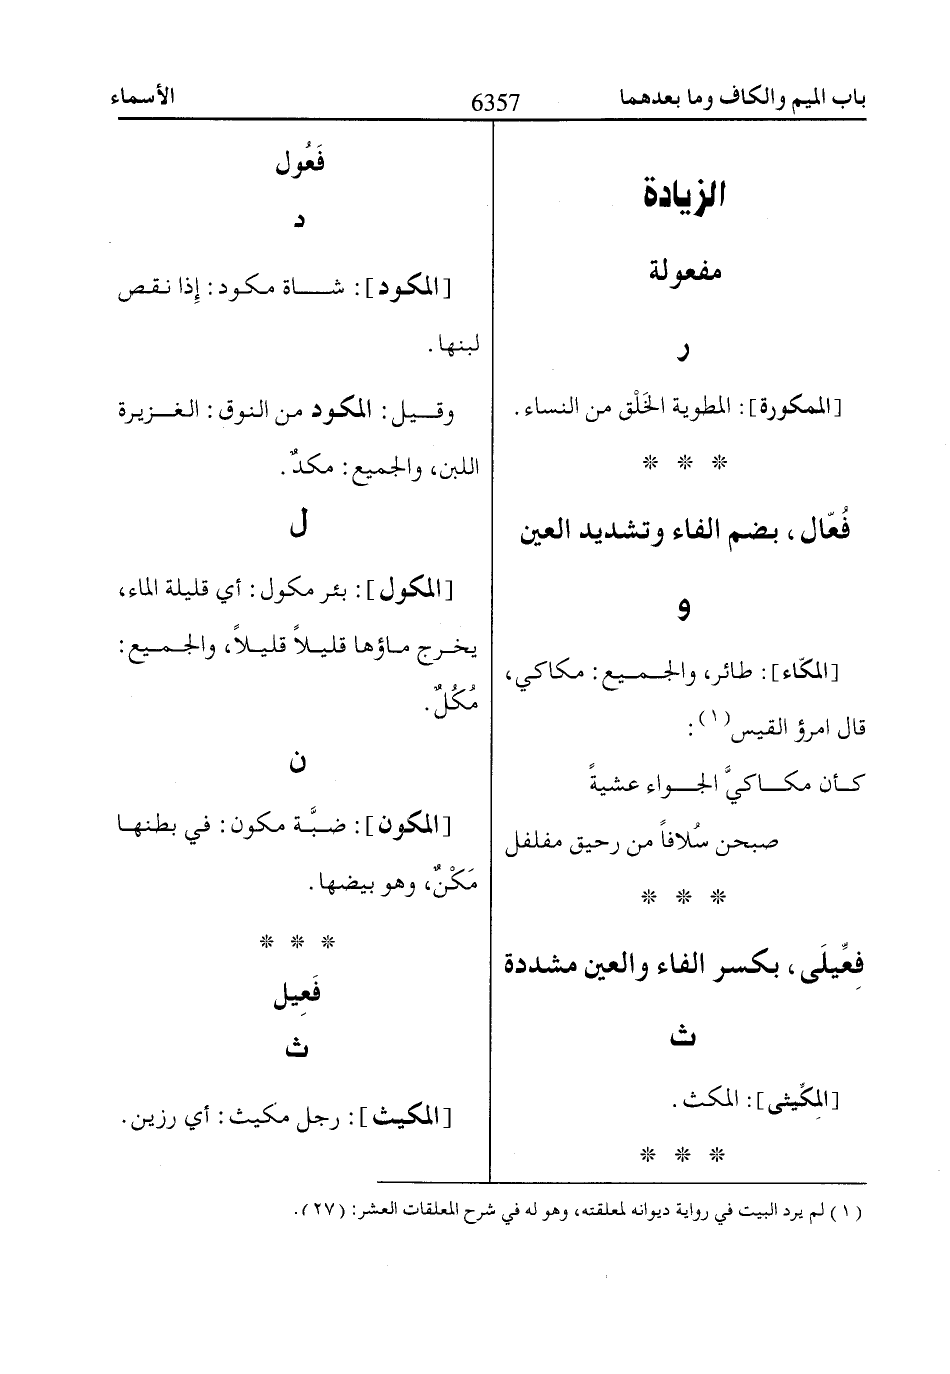 باب الميم والكاف وما بعدهما 6357 الأسماء
الزيادة
مفعولة
ر
[الممكورة]: المطوية الخَلْق من النساء.
* * *
فُعّال، بضم الفاء وتشديد العين
و
[المكّاء]: طائر، والجمـيع: مكاكي،
قال امرؤ القيس(١):
كأن مكاكيَّ الجواء عشيةً
صبحن سُلافاً من رحيق مفلفل
* * *
فِعِّيلَى، بكسر الفاء والعين مشددة
ث
[المكِّيثى]: المكث.
* * *
فَعُول
د
[المكود]: شاة مكود: إذا نقص
لبنها.
وقيل: المكود من النوق: الغزيرة
اللبن، والجميع: مكدٌ.
ل
[المكول]: بئر مكول: أي قليلة الماء،
يخرج ماؤها قليلاً قليلاً، والجميع:
مُكُلٌ.
ن
[المكون]: ضبَّة مكون: في بطنها
مَكْنٌ، وهو بيضها.
* * *
فَعِيل
ث
[المكيث]: رجل مكيث: أي رزين.
(١) لم يرد البيت في رواية ديوانه لمعلقته، وهو له في شرح المعلقات العشر: (٢٧).